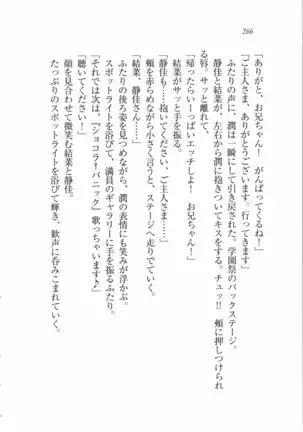 266
「ありがと、お兄ちゃん！　がんばってくるね！」
「ご主人さま、ありがとうございます。行ってきます」
ふたりの声に、潤は一瞬にして引き戻された。学園祭のバックステージ。
静佳と結菜が、左右から潤に抱きついてキスをする。チュッ!!　頰に押しつけられ
る唇。サッと離れて、
「帰ったらいーっぱいエッチしよ！　お兄ちゃん！」
結菜がサッと手を振る。
「静佳も……抱いてください、ご主人さま……」
頰を赤らめながら小さく言うと、ステージへ走りでていく。
「結菜、静佳さん……」
ふたりの後ろ姿を見つめながら、潤の表情にも笑みが浮かぶ。
スポットライトを浴びて、満員のギャラリーに手を振るふたり。
「それでは次は、『ショコラ†パニック』歌っちゃいます♪」
「聴いてください！」
顔を見合わせて微笑む結菜と静佳。
たっぷりのスポットライトを浴びて輝き、歓声に呑みこまれていく。